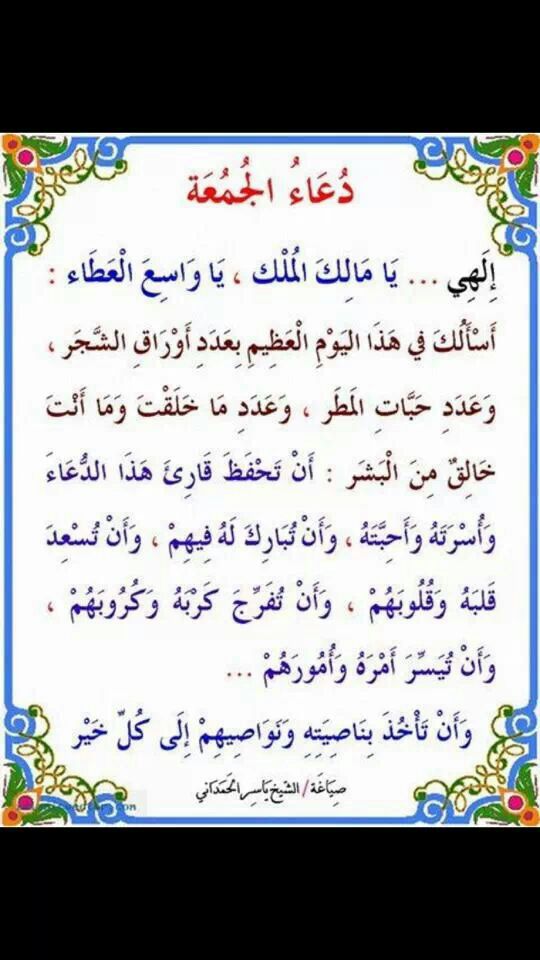 دُعَاءُ الْجُمُعَة
إِلَهِي ... يَا مَالِكَ الْمُلْك ، يَا وَاسِعَ الْعَطَاء :
أَسْأَلُكَ في هَذَا اليَوْمِ الْعَظِيمِ بِعَدَدِ أَوْرَاقِ الشَّجَر ،
وَعَدَدِ حَبَّاتِ المَطَر ، وَعَدَدِ مَا خَلَقْتَ وَمَا أَنْتَ
خَالِقٌ مِنَ الْبَشَر : أَنْ تَحْفَظَ قَارِئَ هَذَا الدُّعَاءَ
وَأُسْرَتَهُ وَأَحِبَّتَهُ ، وَأَنْ تُبَارِكَ لَهُ فِيهِمْ ، وَأَنْ تُسْعِدَ
قَلبَهُ وَقُلُوبَهُمْ ، وَأَنْ تُفَرِّجَ كَرْبَهُ وَكُرُوبَهُمْ ،
وَأَنْ تُيَسِّرَ أَمْرَهُ وَأُمُورَهُمْ ...
وَأَنْ تَأْخُذَ بِنَاصِيَتِهِ وَنَوَاصِيهِمْ إِلَى كُلِّ خَيْر
صِيَاغَة / الشَّيْخ يَاسِر الحَمَدَاني